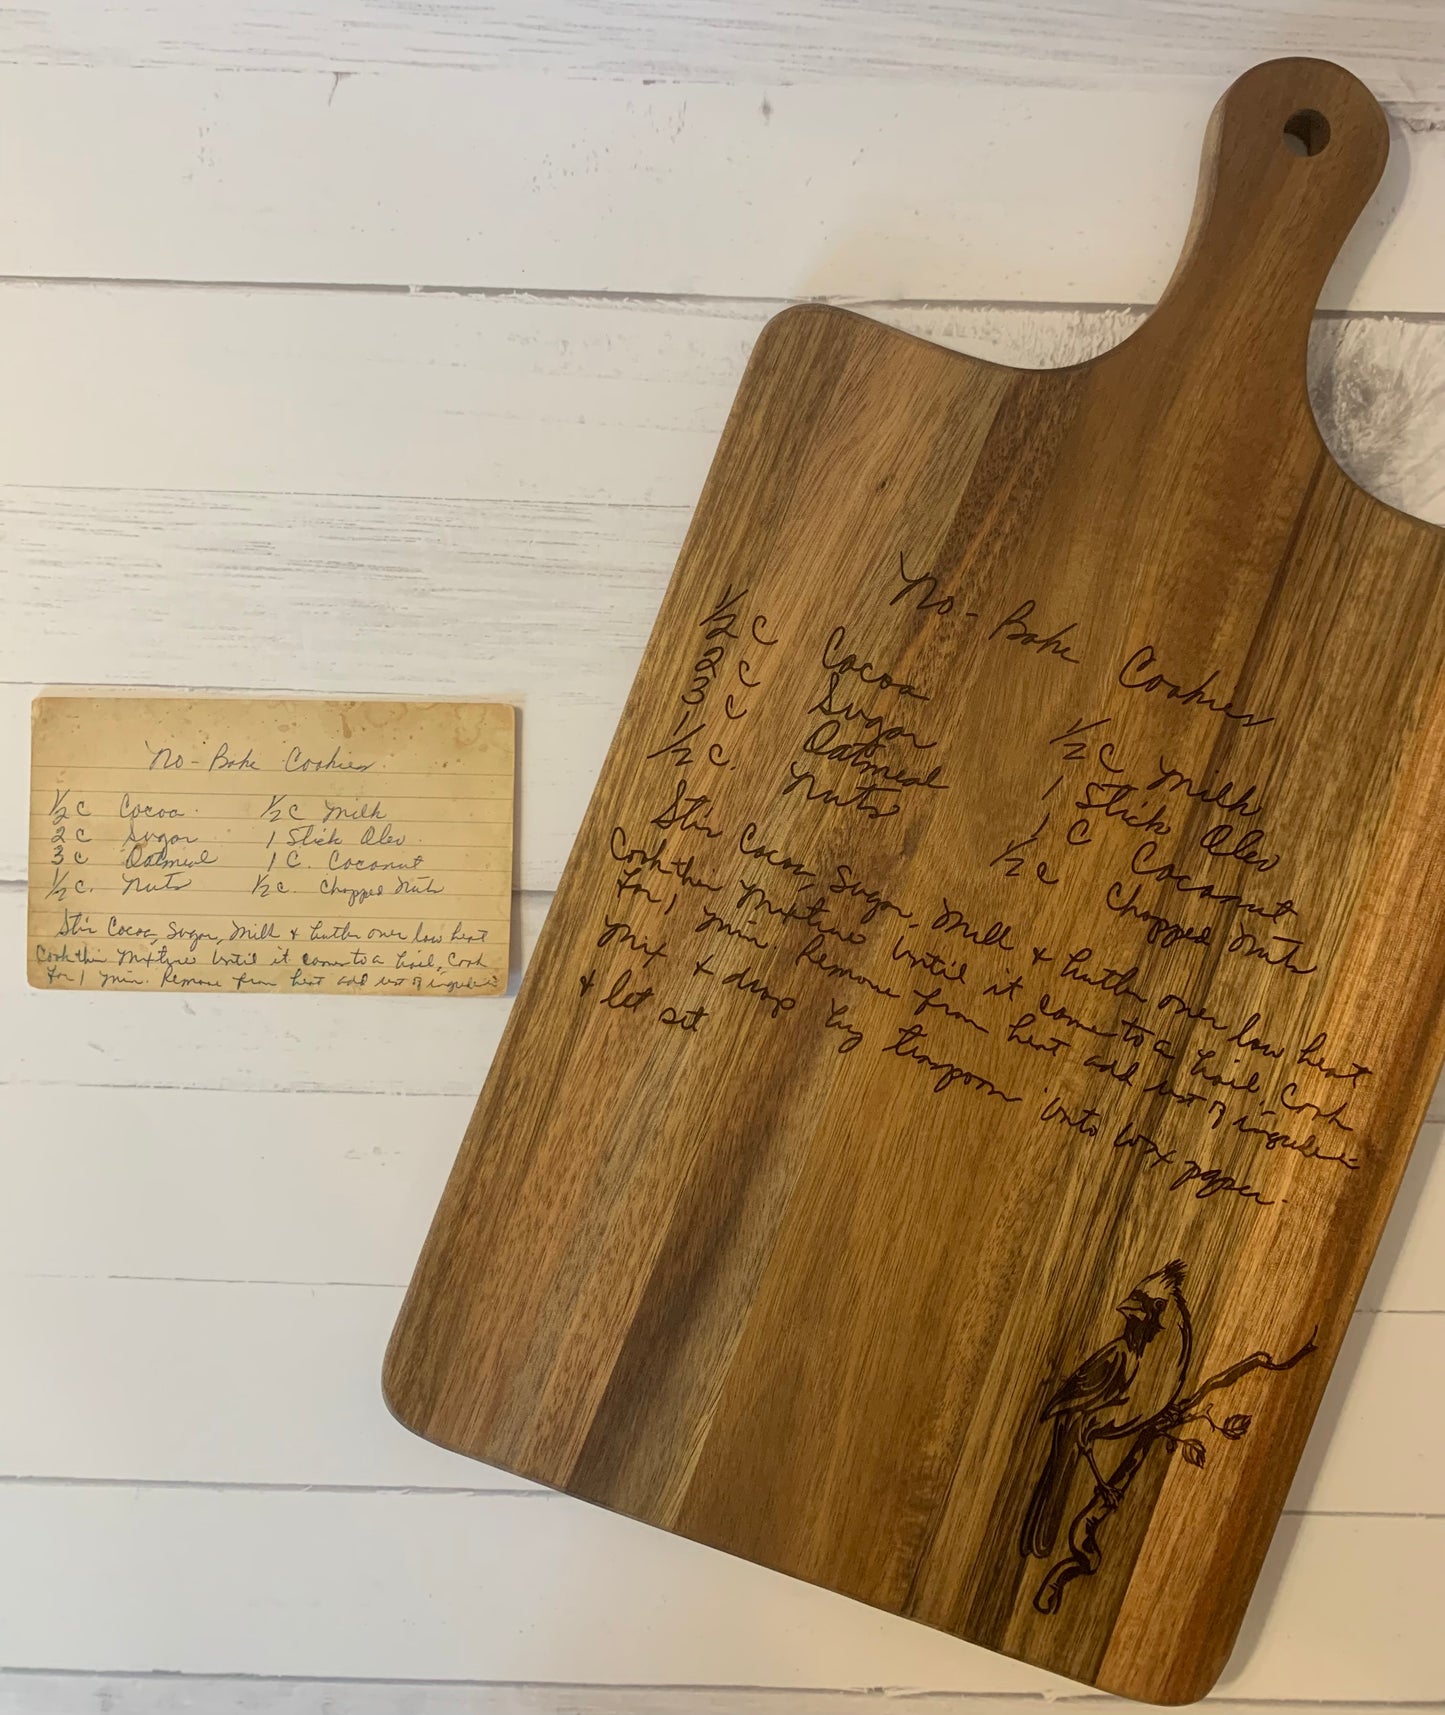 No-Bake Cookies
1/2 C Cocoa 1/2 C Milk
2 C Sugar 1 Stick Oleo
3 C Oatmeal 1 C. Coconut
1/2 C. Nuts 1/2 C. Chopped Nuts
Stir Cocoa, Sugar, Milk & butter over low heat
Cook this Mixture Until it comes to a boil, Cook
for 1 min. Remove from heat add rest of
No-Bake Cookies
1/2 C Cocoa 1/2 C Milk
2 C Sugar 1 Stick Oleo
3 C Oatmeal 1 C Coconut
1/2 C. Nuts 1/2 C Chopped Nuts
Stir Cocoa, Sugar, Milk & butter over low heat
Cook this Mixture Until it comes to a boil, Cook
for 1 min. Remove from heat add rest of
Mix & drop by teaspoon Unto wax paper.
& let set